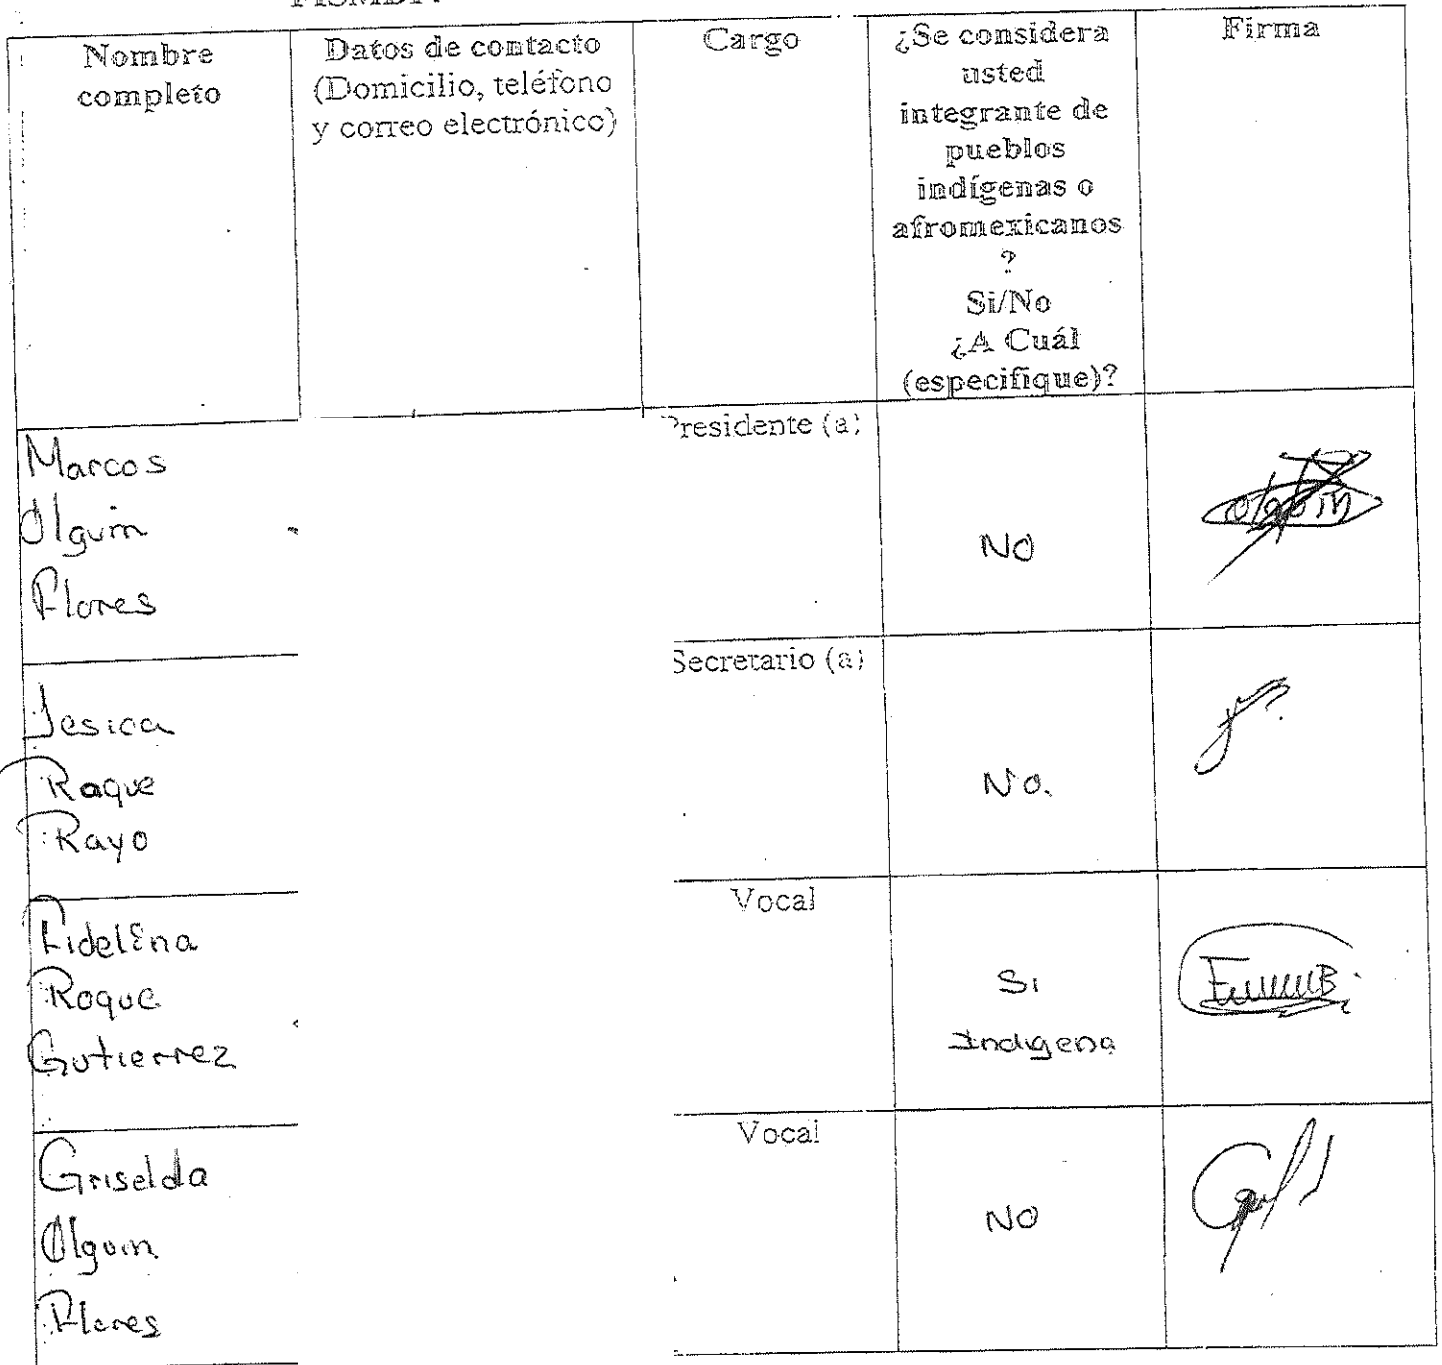 Nombre
completo
Datos de contacto
(Domicilio, teléfono
y correo electrónico)
Cargo
¿Se considera
usted
integrante de
pueblos
indígenas o
afromexicanos
?
Si/No
¿A Cuál
(especifique)?
Firma
Marcos
Olguin
Flores
Presidente (a)
NO
olguin
Jesica
Roque
Rayo
Secretario (a)
No.
Fidelina
Roque
Gutierrez
Vocal
Si
Indigena
Griselda
Olguin
Flores
Vocal
NO